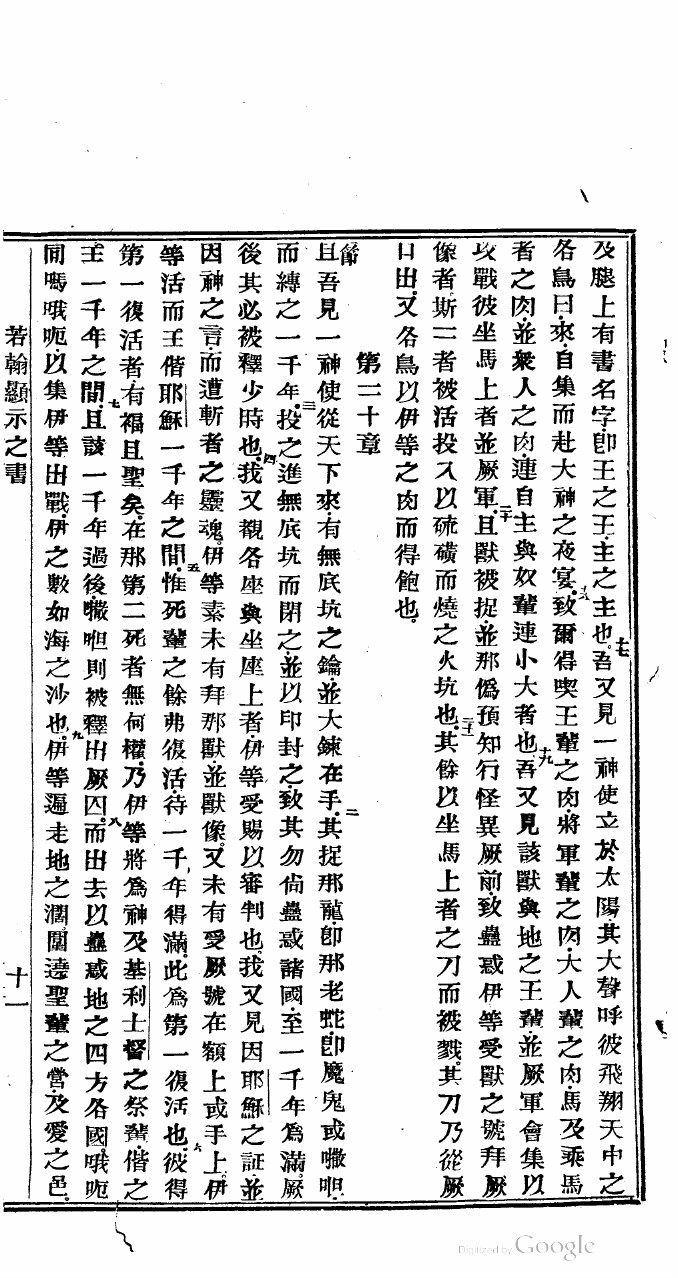 及腿上有書名字卽王之王主之主也。十七吾又見一神使立於太陽其大聲呼彼飛翔天中之
各鳥曰來自集而赴大神之夜宴十八致爾得喫王輩之肉將軍輩之肉大人輩之肉馬及乘馬
者之肉並衆人之肉連自主與奴輩連小大者也。十九吾又見該獸與地之王輩並厥軍會集以
攻戰彼坐馬上者並厥軍。二十且獸被捉並那僞預知行怪異厥前致蠱惑伊等受獸之號拜厥
像者斯二者被活投入以硫磺而燒之火坑也。二十一其餘以坐馬上者之刀而被戮其刀乃從厥
口出又各鳥以伊等之肉而得飽也。
第二十章
一節且吾見一神使從天下來有無底坑之鑰並大鍊在手。二其捉那龍卽那老蛇卽魔鬼或㘔呾
而縛之一千年。三投之進無底坑而閉之並以印封之致其勿尙蠱惑諸國至一千年爲滿厥
後其必被釋少時也。四我又觀各座與坐座上者伊等受賜以審判也我又見因耶穌之証並
因神之言而遭斬者之靈魂伊等素未有拜那獸並獸像又未有受厥號在額上或手上伊
等活而王偕耶穌一千年之間。五惟死輩之餘弗復活待一千年得滿此爲第一復活也。六彼得
第一復活者有福且聖矣在那第二死者無何權乃伊等將爲神及基利士督之祭輩偕之
王一千年之間。七且該一千年過後㘔呾則被釋出厥囚。八而出去以蠱惑地之四方各國哦呃
同嗎哦呃以集伊等出戰伊之數如海之沙也。九伊等遍走地之濶圍遶聖輩之營及愛之邑。
若翰顯示之書
十一
Digitized by Google